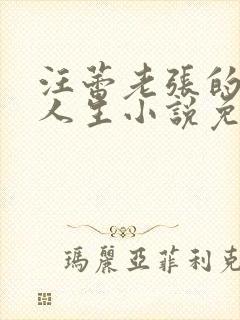 汪蕾老張的
人生小說免
瑪麗亞菲利克